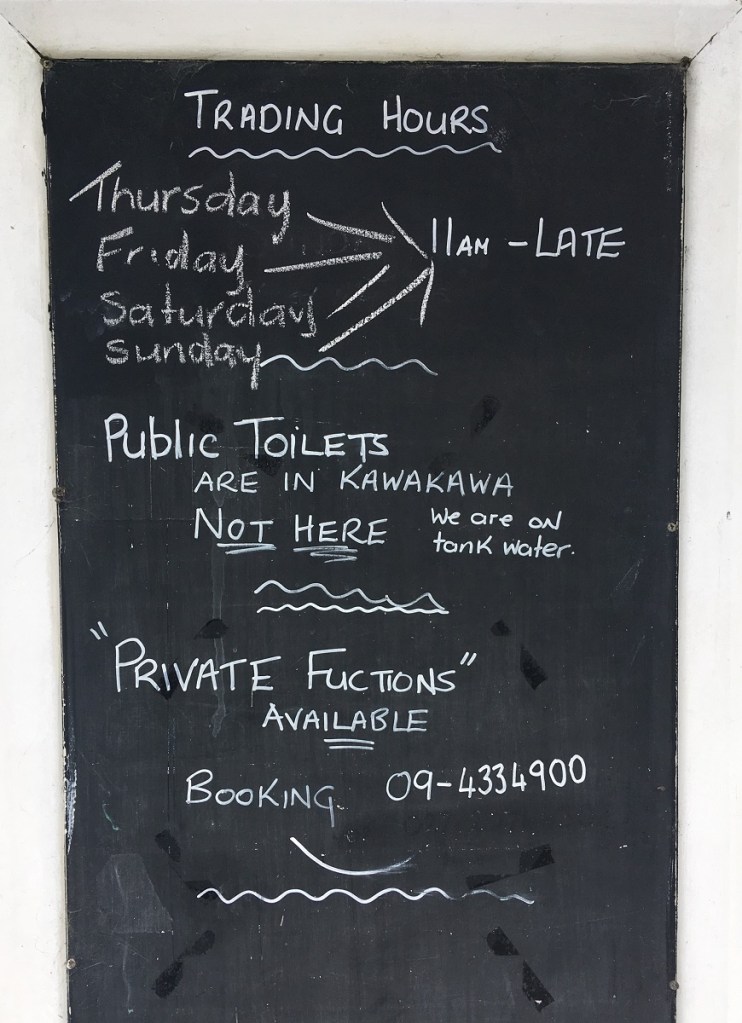 TRADING HOURS
Thursday
Friday
Saturday
sunday
11AM - LATE
Public TOILETS
ARE IN KAWAKAWA
NOT HERE
We are on
tank water.
"PRIVATE FUCTIONS"
AVAILABLE
BOOKING 09-4334900